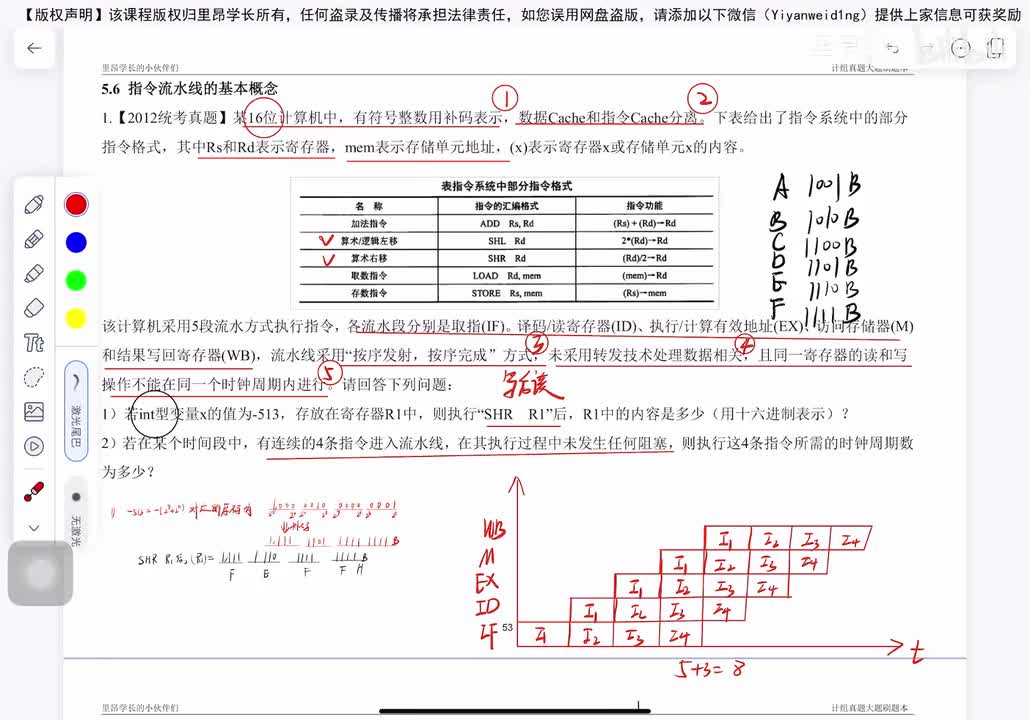 【版权声明】该课程版权归里昂学长所有，任何盗录及传播将承担法律责任，如您误用网盘盗版，请添加以下微信（Yiyanweid1ng）提供上家信息可获奖励
里昂学长的小伙伴们 计组真题大题刷题本
5.6 指令流水线的基本概念
① ②
1.【2012统考真题】某16位计算机中，有符号整数用补码表示，数据Cache和指令Cache分离。下表给出了指令系统中的部分
指令格式，其中Rs和Rd表示寄存器，mem表示存储单元地址，(x)表示寄存器x或存储单元x的内容。
表指令系统中部分指令格式
名 称 指令的汇编格式 指令功能
加法指令 ADD Rs, Rd (Rs)+(Rd)→Rd
算术/逻辑左移 SHL Rd 2*(Rd)→Rd
算术右移 SHR Rd (Rd)/2→Rd
取数指令 LOAD Rd, mem (mem)→Rd
存数指令 STORE Rs, mem (Rs)→mem
A 1001B
B 1010B
C 1100B
D 1101B
E 1110B
F 1111B
该计算机采用5段流水方式执行指令，各流水段分别是取指(IF)。译码/读寄存器(ID)、执行/计算有效地址(EX)、访问存储器(M)
③ ④
和结果写回寄存器(WB)，流水线采用“按序发射，按序完成”方式，未采用转发技术处理数据相关，且同一寄存器的读和写
⑤
操作不能在同一个时钟周期内进行。请回答下列问题：
写后读
1）若int型变量x的值为-513，存放在寄存器R1中，则执行“SHR R1”后，R1中的内容是多少（用十六进制表示）？
2）若在某个时间段中，有连续的4条指令进入流水线，在其执行过程中未发生任何阻塞，则执行这4条指令所需的时钟周期数
为多少？
1000 0010 0000 0001
1111 1101 1111 1111B
SHR R1后，(R1)= 1111 1110 1111 1111B
F E F F H
WB I1 I2 I3 I4
M I1 I2 I3 I4
EX I1 I2 I3 I4
ID I1 I2 I3 I4
IF I1 I2 I3 I4
53
t
5+3=8
Tt
激光尾巴
无激光
里昂学长的小伙伴们 计组真题大题刷题本